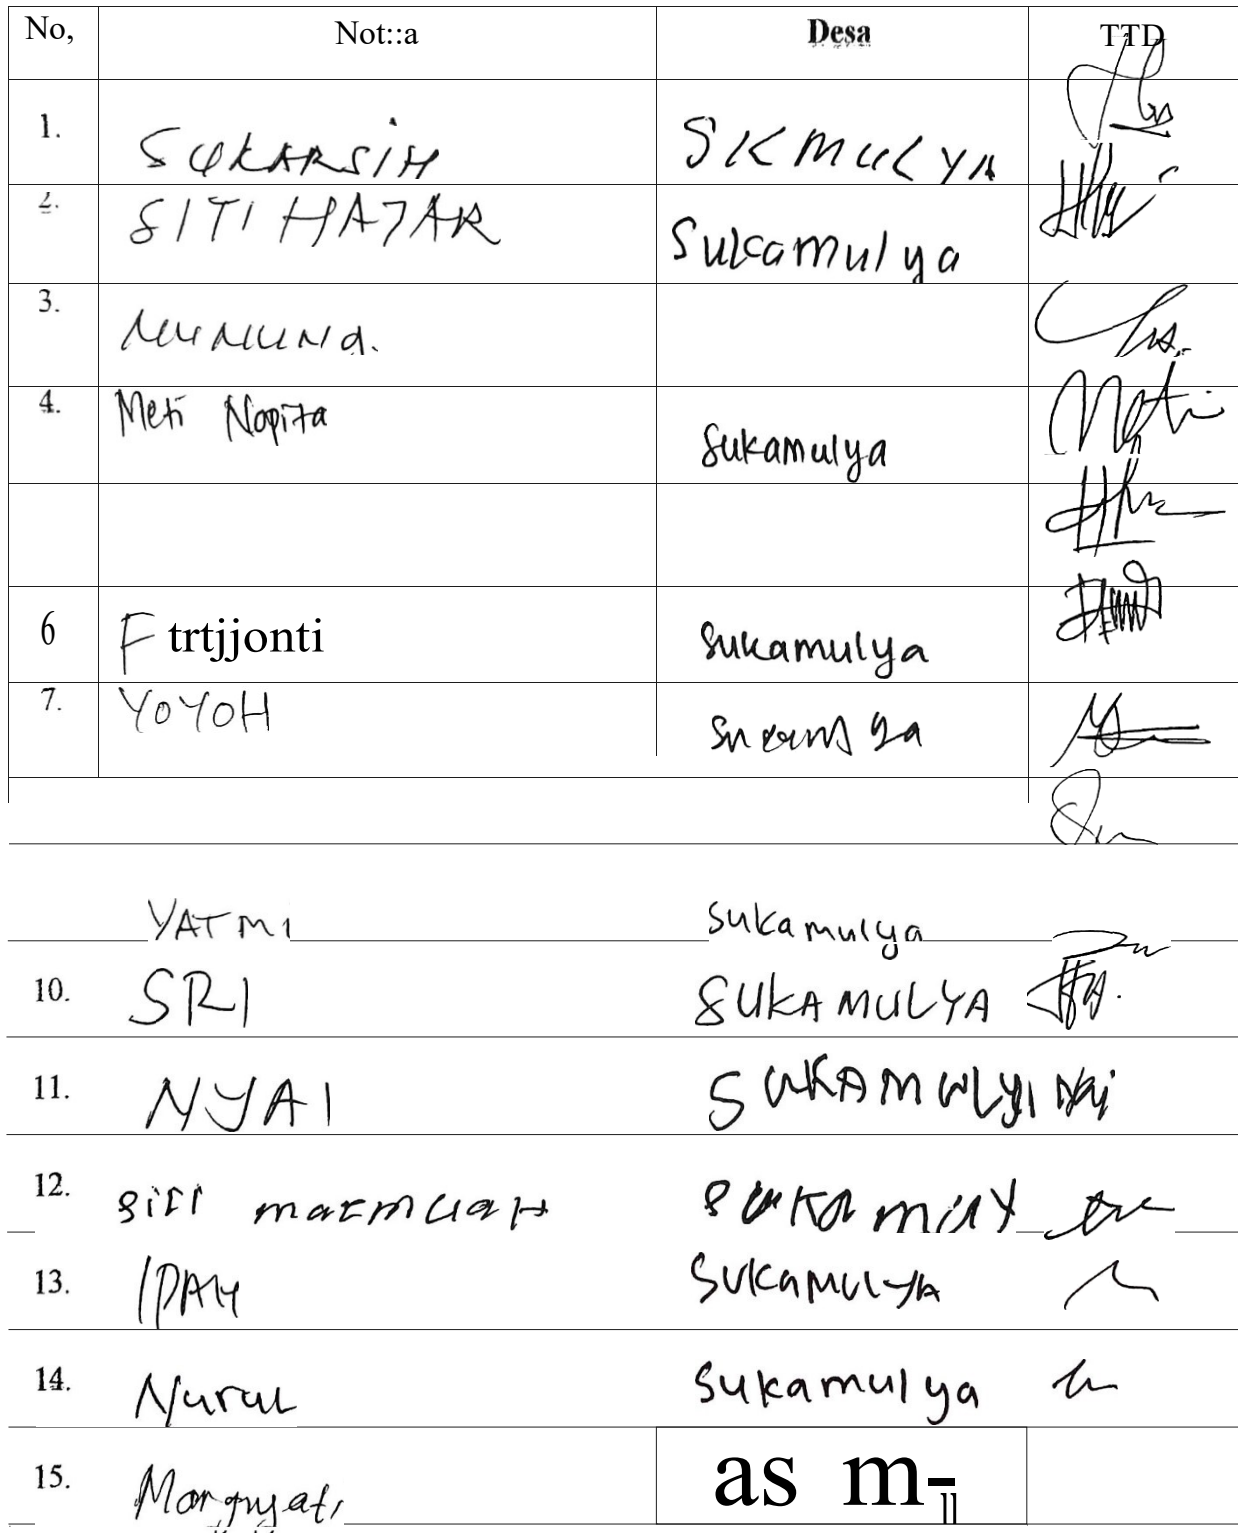 No, Not::a Desa TTD
1. SUKARSIH SKMULYA
2. SITI HAJAR Sukamulya
3.
4. Meti Nopita Sukamulya
6 F trtjjonti Sukamulya
7. YOYOH
YATMI Sukamulya
10. SRI SUKAMULYA
11. NYAI SUKAMULYI
12. SITI
13. IPAH SUKAMULYA
14. Nurul Sukamulya
15. as m-